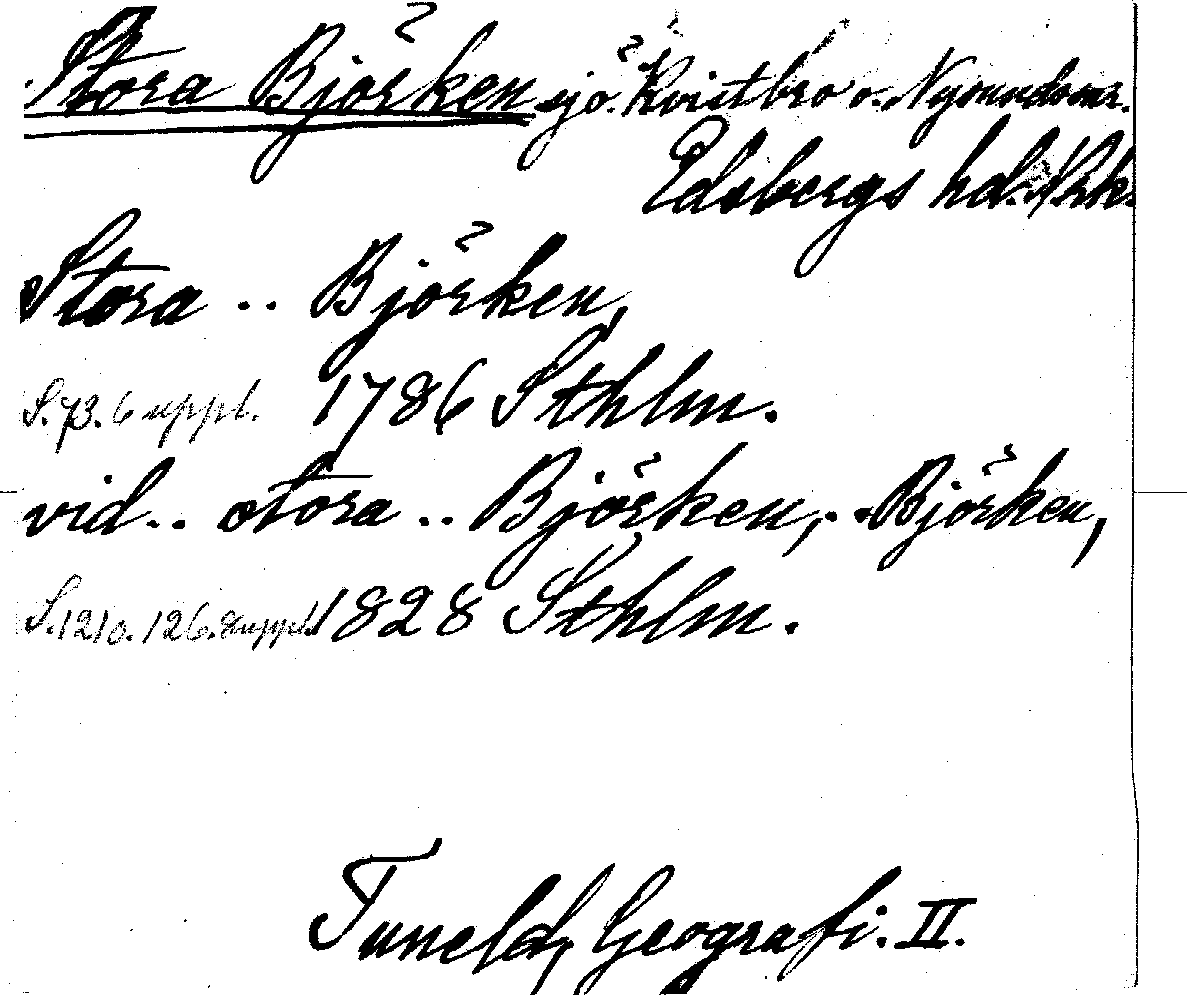 Stora Björken sjö. Kvistbro o. Nysunds snr.
Edsbergs hd. Nrk.
Stora .. Björken,
S. 73. 6 uppl. 1786 Sthlm.
vid .. stora .. Björken, .. Björken,
S. 121 o. 126. 8 uppl. 1828 Sthlm.
Tuneld, Geografi. II.